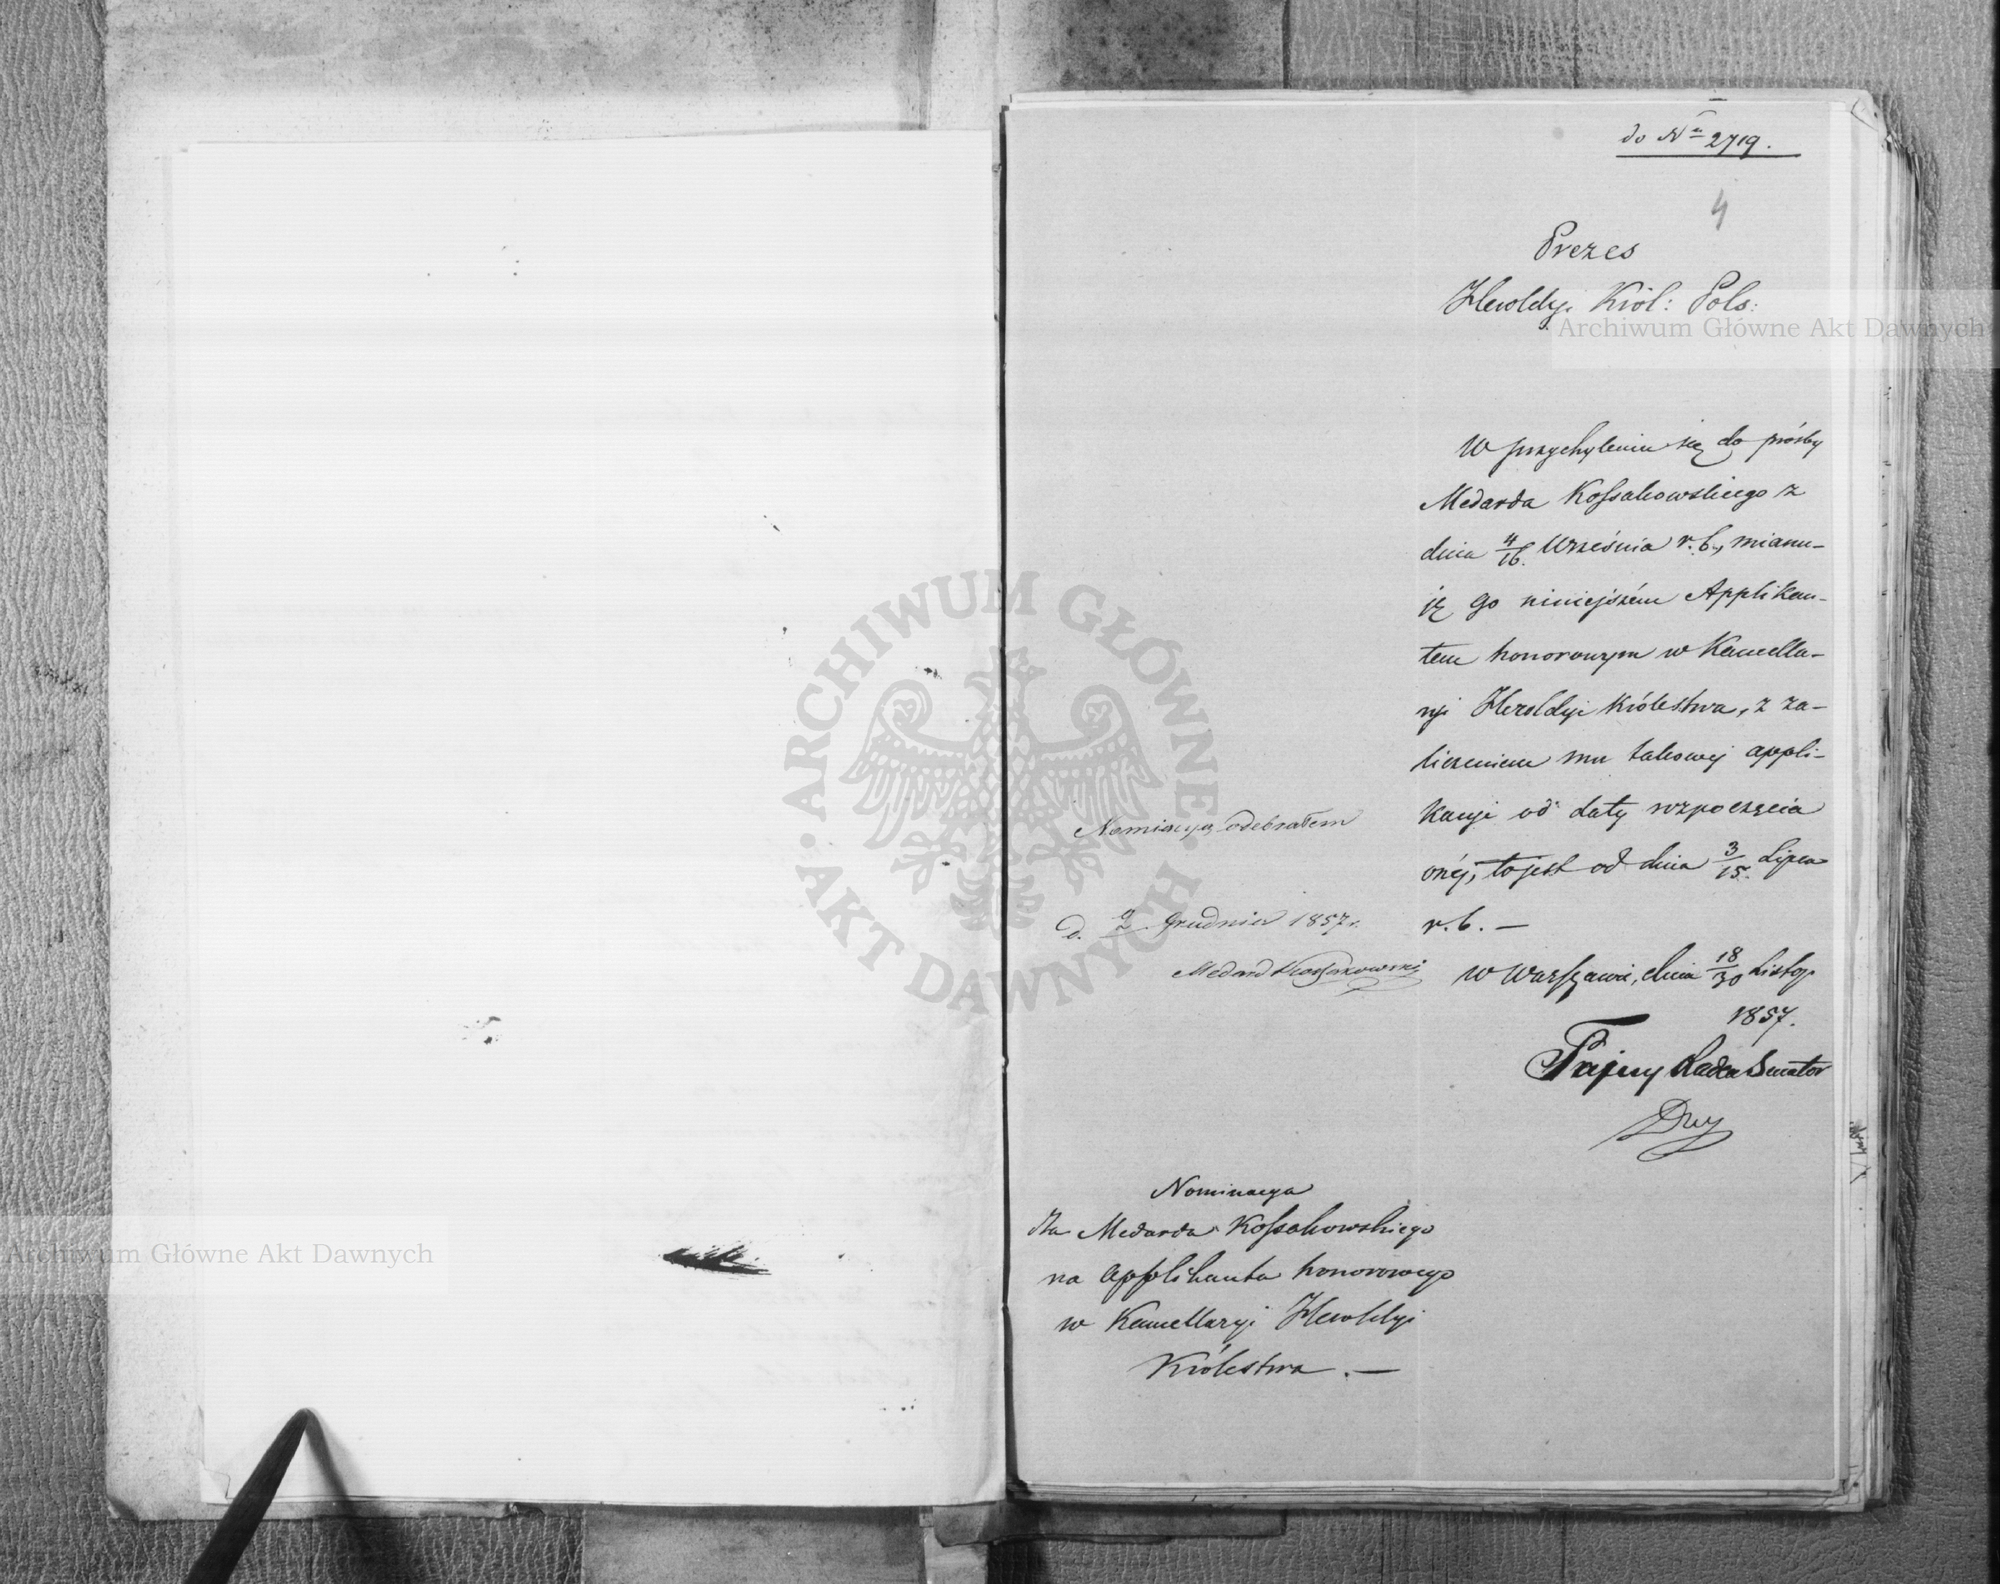 do Nru 2719.
4
Prezes
Heroldyi Król: Pols:
W przychyleniu się do prośby
Medarda Kossakowskiego z
dnia 4/16. Września r. b., mianu-
ję go niniejszém Applikan-
tem honorowym w Kancella-
ryi Heroldyi Królestwa, z za-
liczeniem mu takowej appli-
kacyi od daty rozpoczęcia
onéj, to jest od dnia 3/15. Lipca
r. b. —
w Warszawie, dnia 18/30 Listop.
1857.
Tajny Radca Senator
Nominacyą odebrałem
d. Grudnia 1857 r.
Medard Kossakowski
Nominacya
dla Medarda Kossakowskiego
na Applikanta honorowego
w Kancellaryi Heroldyi
Królestwa. —
Archiwum Główne Akt Dawnych
Archiwum Główne Akt Dawnych
ARCHIWUM GŁÓWNE AKT DAWNYCH